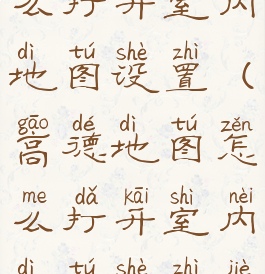 么打开室内
dì tú shè zhì
地图设置（
gāo dé dì tú zěn
高德地图怎
me dǎ kāi shì nèi
么打开室内
dì tú shè zhì jiè